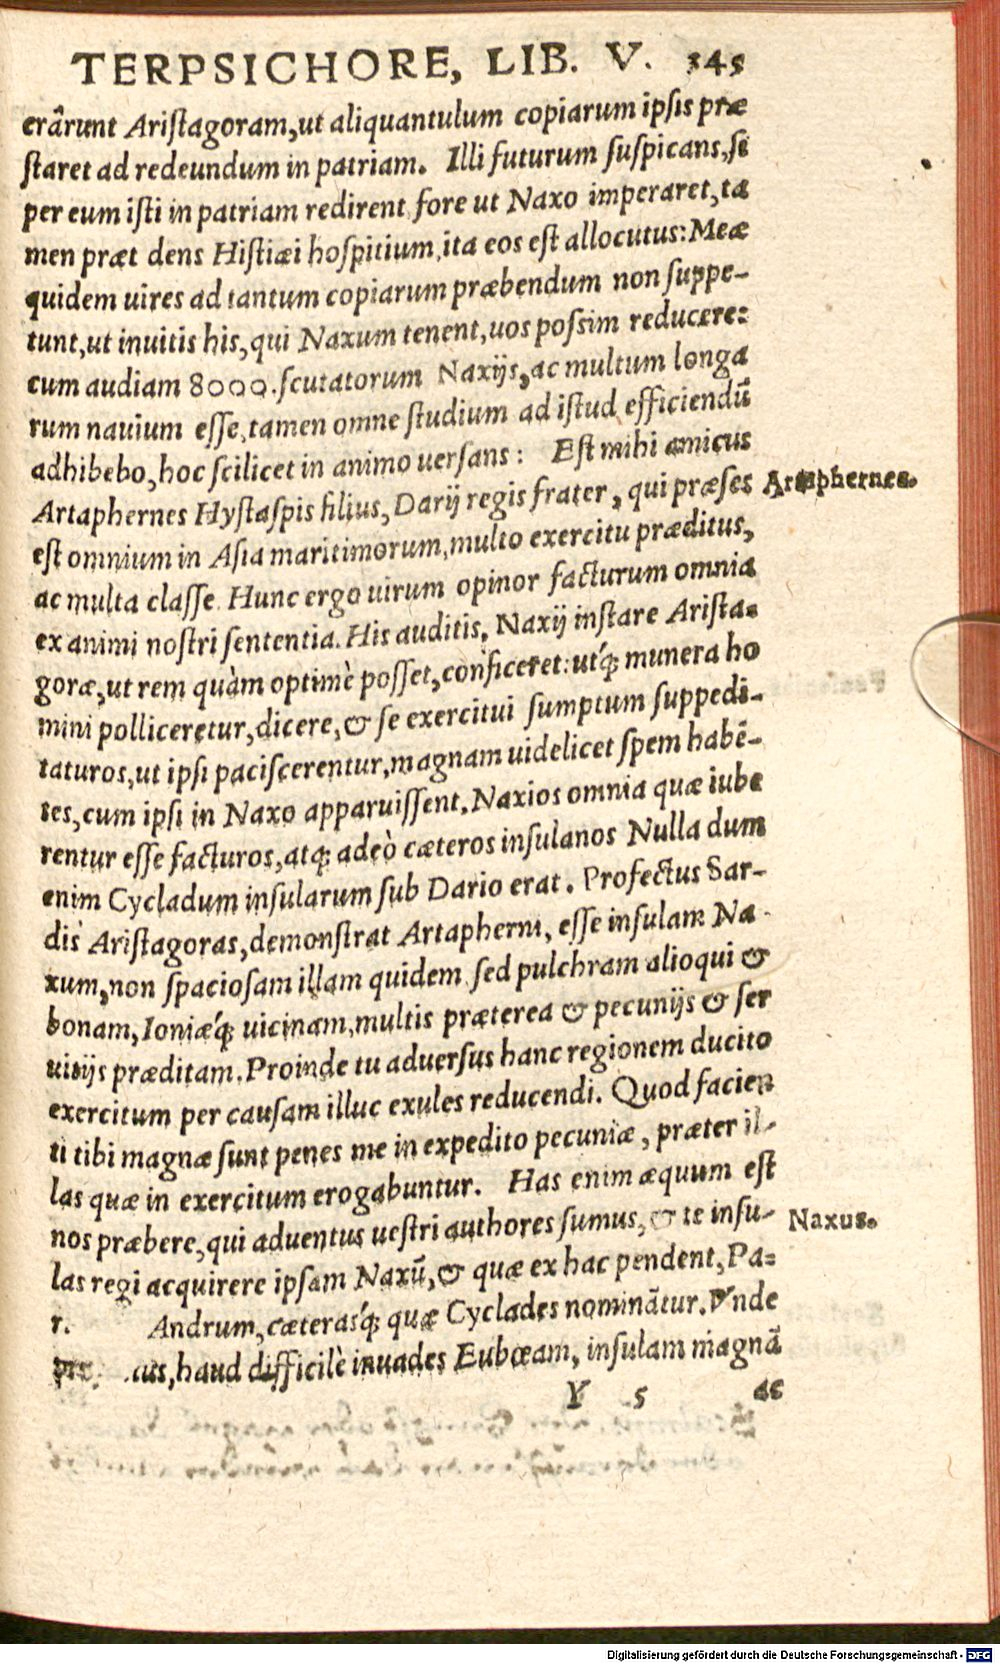 TERPSICHORE, LIB. V. 345
erârunt Ariſtagoram,ut aliquantulum copiarum ipſis præ
ſtaret ad redeundum in patriam. Illi futurum ſuſpicans,ſi
per eum iſti in patriam redirent fore ut Naxo imperaret,ta
men præt dens Hiſtiæi hoſpitium,ita eos eſt allocutus:Meæ
quidem uires ad tantum copiarum præbendum non ſuppe-
tunt,ut inuitis his,qui Naxum tenent,uos poſsim reducere:
cum audiam 8000.ſcutatorum Naxijs,ac multum longa
rum nauium eſſe,tamen omne ſtudium ad iſtud efficiendū
adhibebo,hoc ſcilicet in animo uerſans: Eſt mihi amicus
Artaphernes Hyſtaſpis filius,Darij regis frater, qui præſes Artaphernes.
eſt omnium in Aſia maritimorum,multo exercitu præditus,
ac multa claſſe. Hunc ergo uirum opinor facturum omnia
ex animi noſtri ſententia. His auditis, Naxij inſtare Ariſta-
goræ,ut rem quàm optimè poſſet,conficeret:utq́; munera ho
mini polliceretur,dicere,& ſe exercitui ſumptum ſuppedi-
taturos,ut ipſi paciſcerentur,magnam uidelicet ſpem habē-
tes,cum ipſi in Naxo apparuiſſent.Naxios omnia quæ iube
rentur eſſe facturos,atq; adeò cæteros inſulanos Nulla dum
enim Cycladum inſularum ſub Dario erat. Profectus Sar-
dis Ariſtagoras,demonſtrat Artapherni, eſſe inſulam Na-
xum,non ſpacioſam illam quidem ſed pulchram alioqui &
bonam,Ioniæq́; uicinam,multis præterea & pecunijs & ſer
uitijs præditam.Proinde tu aduerſus hanc regionem ducito
exercitum per cauſam illuc exules reducendi. Quod facien
ti tibi magnæ ſunt penes me in expedito pecuniæ, præter il-
las quæ in exercitum erogabuntur. Has enim æquum eſt
nos præbere,qui aduentus ueſtri authores ſumus,& te inſu- Naxus.
las regi acquirere ipſam Naxū,& quæ ex hac pendent,Pa-
r. Andrum,cæterasq́; quæ Cyclades nominātur.Vnde
haud difficilè inuades Eubœam, inſulam magnā
Y 5 ac
Digitalisierung gefördert durch die Deutsche Forschungsgemeinschaft - DFG